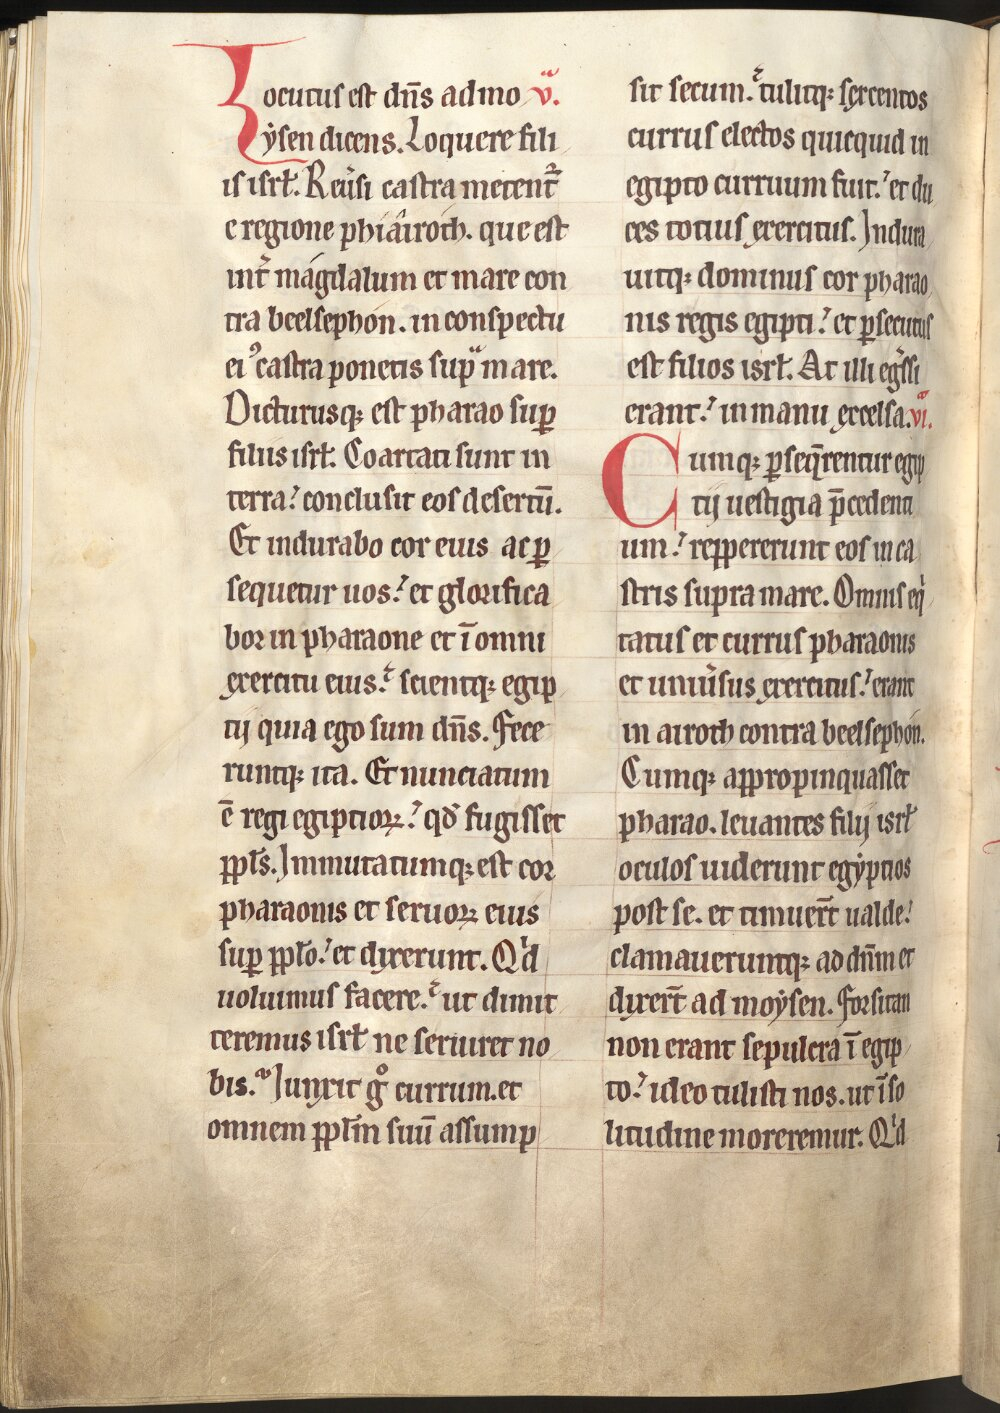 Locutus est dn̄s ad mo v̄.
ẏsen dicens. Loquere fili
is isrł. Reu̾si castra metent᷑
e regione phiâiroth. que est
int᷑ mágdalum et mare con
tra beelsephón. in conspectu
ei᾽ castra ponetis sup̲ᵃ mare.
Dicturusq; est pharao suꝑ
filiis isrł. Coartati sunt in
terra.᾽ conclusit eos desertū.
Et indurabo cor eius ac ꝑ
sequetur uos.᾽ et glorifica
bor in pharaone et ī omni
exercitu eius.᾽ scientq; egip
tij quia ego sum dn̄s. Fece
runtq; ita. Et nunciatum
ē regi egiptioꝝ.᾽ qđ fugisset
ppl̄s. Inmutatumq; est cor
pharaonis et seruoꝝ eius
suꝑ ppl̄o.᾽ et dixerunt. Qⁱd
uoluimus facere.᾽ ut dimit
teremus isrł ne seruiret no
bis.᾽ Iunxit gͦ currum. et
omnem ppl̄m suū assump
sit secum.᾽ tulitq; sexcentos
currus electos quicquid in
egipto curruum fuit.᾽ et du
ces totius exercitus. Indura
uitq; dominus cor pharao
nis regis egipti.᾽ et ꝑsecutus
est filios isrł. At illi eg̾ssi
erant.᾽ in manu excelsa. vi.
Cumq; ꝑseq̄rentur egip
tij uestigia p̄cedenti
um.᾽ reppererunt eos in ca
stris supra mare. Omnis eqⁱ
tatus et currus pharaonis
et uniu̾sus exercitus.᾽ erant
in airoth contra beelsephón.
Cumq; appropinquasset
pharao. leuantes filij isrł
oculos uiderunt egẏptios
post se. et timuer̄t ualde.᾽
clamaueruntq; ad dn̄m et
dixer̄t ad moẏsen. Forsitan
non erant sepulcra ī egip
to.᾽ ideo tulisti nos. ut ī so
litudine moreremur. Qⁱd